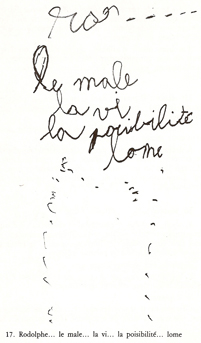 le male
la vi
la poisibilité
lome
17. Rodolphe... le male... la vi... la poisibilité... lome